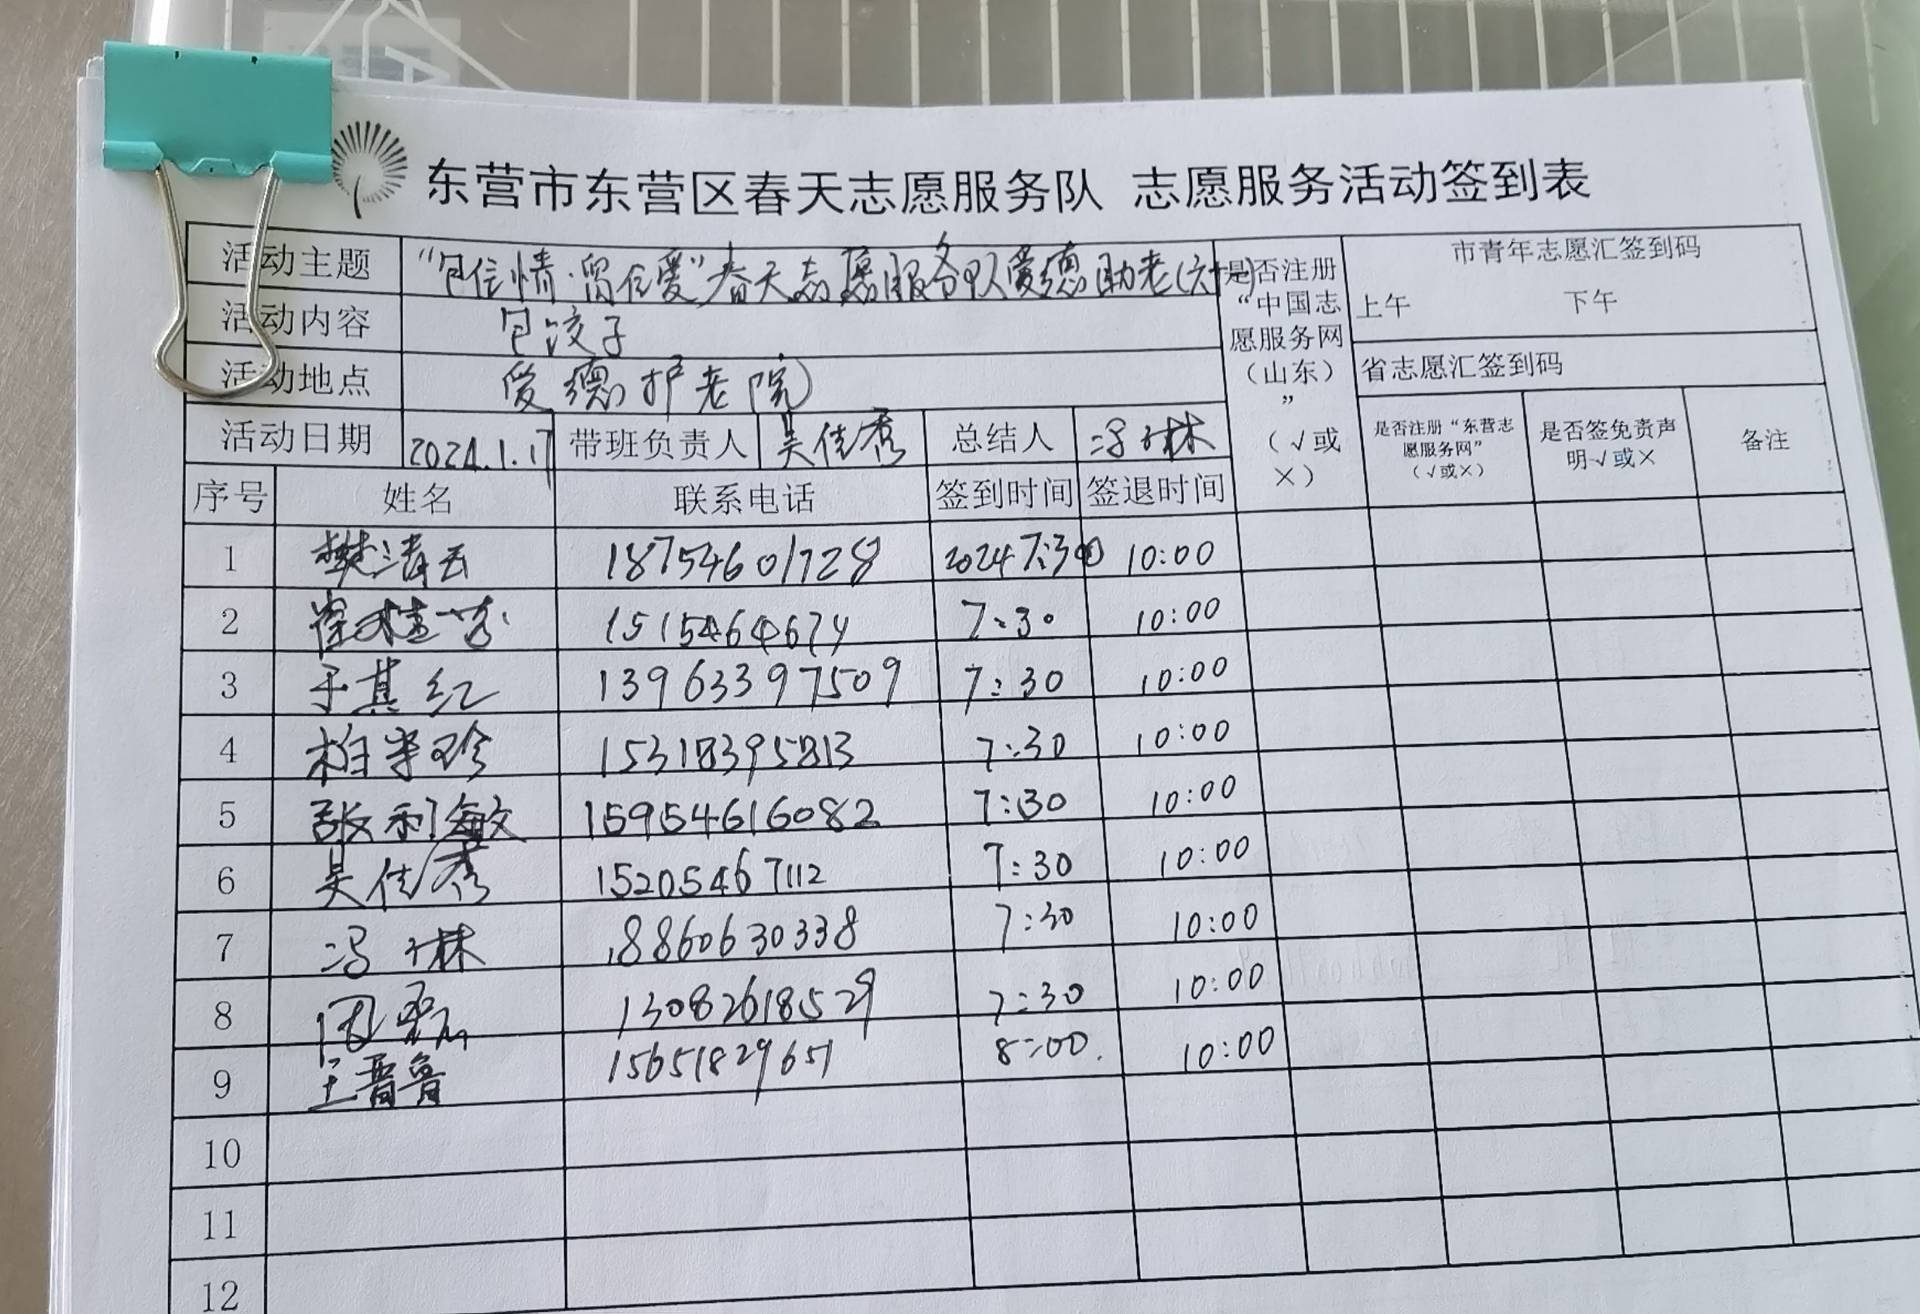 东营市东营区春天志愿服务队 志愿服务活动签到表
活动主题 “包住情·留住爱”春天志愿服务队爱德助老(六十四)
活动内容 包饺子
活动地点 爱德护老院
活动日期 2024.1.17 带班负责人 吴佳秀 总结人 冯林
是否注册“中国志愿服务网（山东）”（√或×）
市青年志愿汇签到码
上午 下午
省志愿汇签到码
是否注册“东营志愿服务网”（√或×） 是否签免责声明√或× 备注
序号 姓名 联系电话 签到时间 签退时间
1 樊清云 18754601728 2024 7:30 10:00
2 1515464674 7:30 10:00
3 于其红 13963397509 7:30 10:00
4 柏半珍 15318395813 7:30 10:00
5 张利敏 15954616082 7:30 10:00
6 吴佳秀 15205467112 7:30 10:00
7 18860630338 7:30 10:00
8 周磊 13082618529 7:30 10:00
9 王晋鲁 15651829651 8:00. 10:00
10
11
12